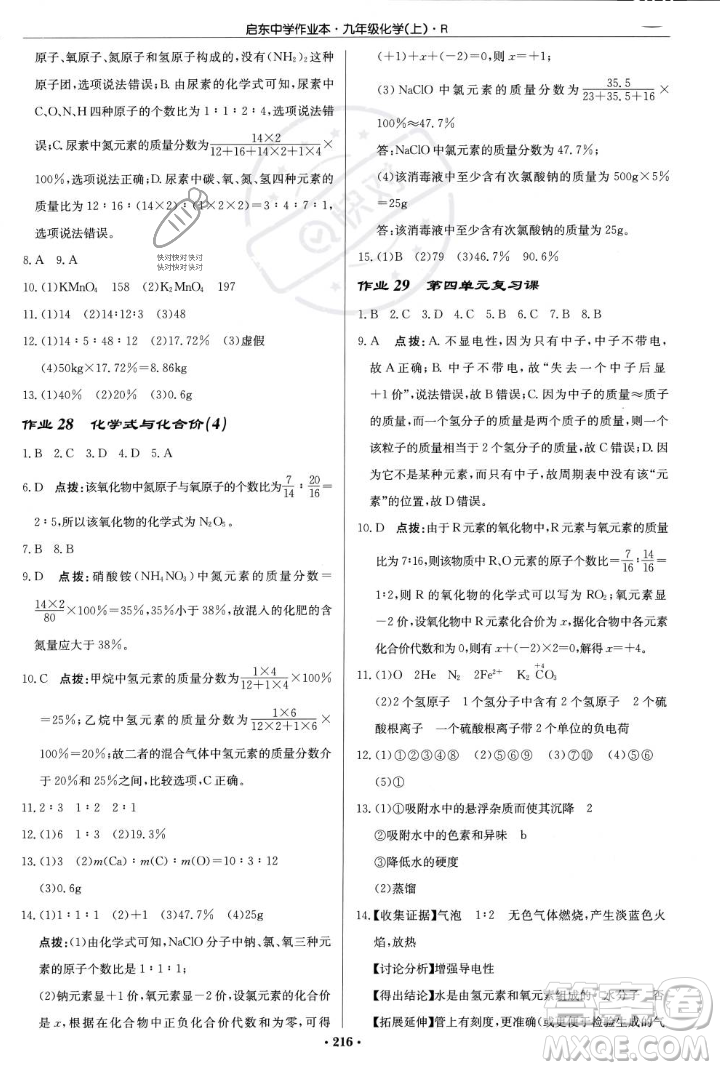 启东中学作业本·九年级化学(上)·R
原子、氧原子、氮原子和氢原子构成的,没有(NH₂)₂这样的
原子团,选项说法错误;B. 由尿素的化学式可知,尿素中
C、O、N、H四种原子的个数比为1∶1∶2∶4,选项说法错
误;C. 尿素中氮元素的质量分数14×2/(12+16+14×2+1×4)×
100%,选项说法正确;D. 尿素中碳、氧、氮、氢四种元素的
质量比为12∶16∶(14×2)∶(4×2×2)=3∶4∶7∶1,
选项说法错误。
8.A 9.A
10.(1)KMnO₄ 158 (2)K₂MnO₄ 197
11.(1)14 (2)14∶12∶3 (3)48
12.(1)14∶5∶48∶12 (2)17.72% (3)虚假
(4)50kg×17.72%=8.86kg
13.(1)40% (2)20% (3)0.6g
作业28 化学式与化合价(4)
1.B 2.C 3.D 4.A 5.C
6.D 点拨:该氧化物中氮原子与氧原子的个数比为7/14∶20/16=
2∶5,所以该氧化物的化学式为N₂O₅。
7.B 8.B
9.D 点拨:硝酸铵(NH₄NO₃)中氮元素的质量分数=
14×2/80×100%=35%,35%小于38%,故混入的化肥的含
氮量应大于38%。
10.C 点拨:甲烷中氢元素的质量分数为(1×4)/(12+1×4)×100%
=25%;乙烷中氢元素的质量分数为(1×6)/(12×2+1×6)×
100%=20%;故二者的混合气体中氢元素的质量分数介
于20%和25%之间,比较选项,C正确。
11.2∶3 1∶2 4∶3
12.(1)6 1∶3 (2)19.3%
13.(1)3 (2)m(Ca)∶m(C)∶m(O)=10∶3∶12
(3)0.6g
14.(1)1∶1∶1 (2)+1 (3)47.7% (4)25g
点拨:(1)由化学式可知,NaClO分子中钠、氯、氧三种元
素的原子个数比为1∶1∶1;
(2)钠元素显+1价,氧元素显-2价,设氯元素的化合价
是x,根据在化合物中正负化合价代数和为零,可得
(+1)+x+(-2)=0,则x=+1;
(3)NaClO中氯元素的质量分数为35.5/(23+35.5+16)×
100%≈47.7%
答:NaClO中氯元素的质量分数为47.7%。
(4)该消毒液中至少含有次氯酸钠的质量为500g×5%
=25g
答:该消毒液中至少含有次氯酸钠的质量为25g。
15.(1)B (2)79 (3)46.7% 90.6%
作业29 第四单元复习课
1.B 2.C 3.D 4.C 5.C 6.C 7.B 8.C
9.A 点拨:A. 不显电性,只有中子,中子不带电,
故A正确;B. 中子不带电,故“失去一个中子后显
+1价”,说法错误,故B错误;C. 质量为中子
的质量,而一个氢分子的质量大约为2个中子的质量,故
该粒子的质量相当于2个氢分子的质量错误;D. 因
它不是某种元素的原子,故周期表中目前还没有该“元
素”的位置,故D错误。
10.D 点拨:由于R元素的氧化物中,R元素与氧元素的质量
比为7∶16,所以R、O元素的原子个数比为7/16∶14/16=
1∶2,则R的氧化物的化学式可以写为RO₂,氧元素显
-2价,设氧化物中R元素化合价为x,据化合物中各元
素化合价代数和为0,则有x+(-2)×2=0,解得x=+4。
11.(1)O 2He N₂ 2Fe²⁺ K₂C⁺⁴O₃
(2)2个氢原子 1个氢分子由2个氢原子构成 2个硫
酸根离子 一个硫酸根离子带2个单位的负电荷
12.(1)①②③④⑧ (2)⑨ (3)⑦⑩ (4)⑤⑥
(5)①
13.(1)①吸附水中的悬浮杂质而使其沉降 2
②吸附水中的色素和异味 b
③降低水的硬度
(2)蒸馏
14.【收集证据】气泡 1∶2 无色气体燃烧,产生淡蓝色火
焰,放热
【讨论分析】增强导电性
【得出结论】水是由氢元素和氧元素组成的
【拓展延伸】管上有刻度,更准确(或更方便于检验生成的气
·216·
快对
快对快对
快对快对
答案圈